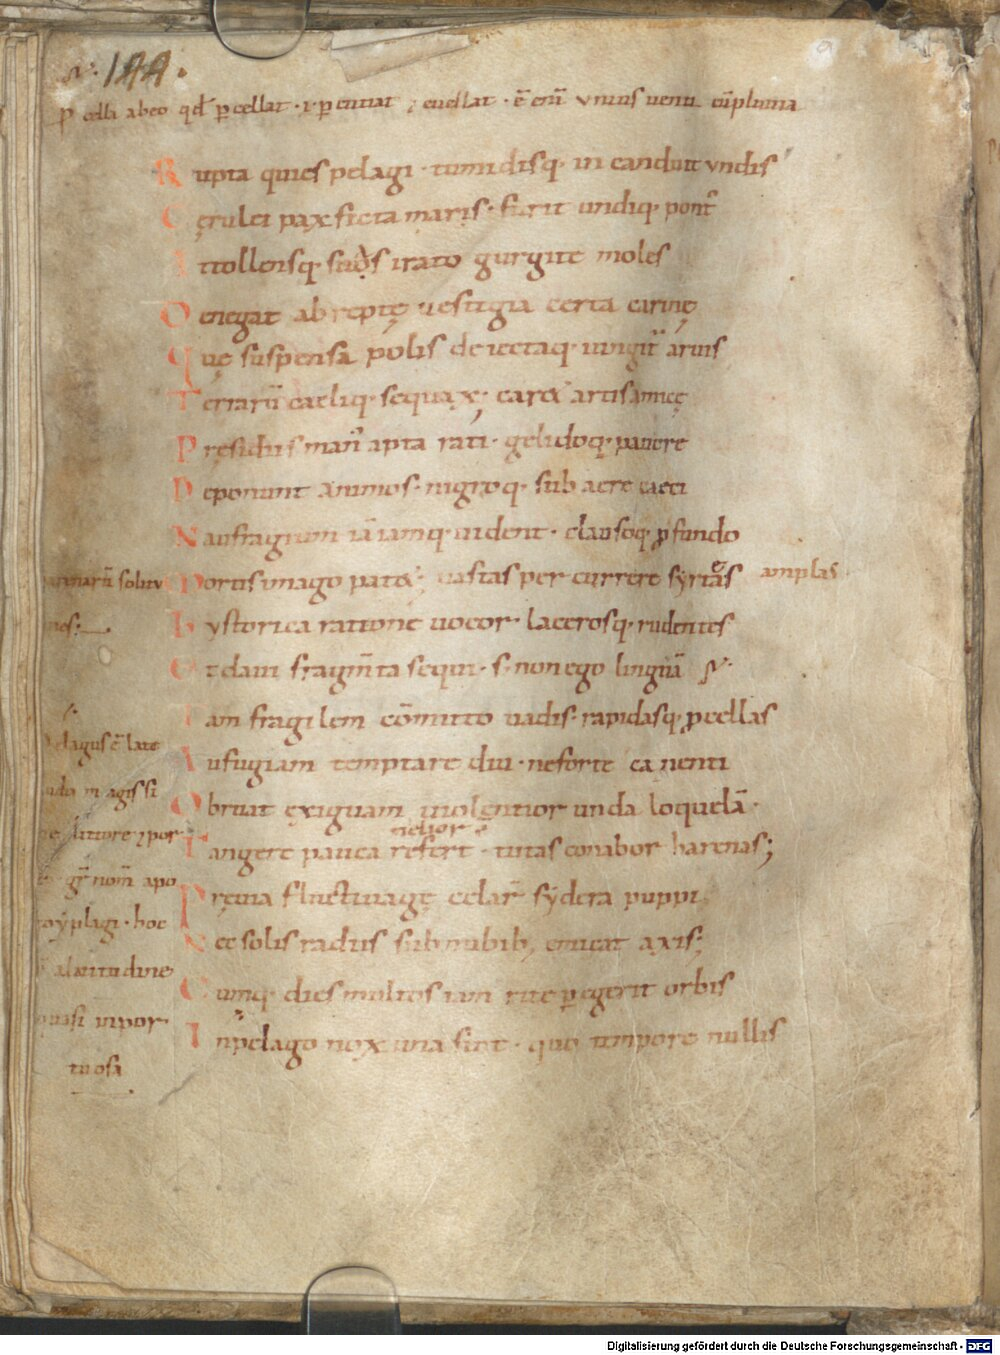 N. 144.
p celli abeo qd̄ p cellat · ı· p cutiat ⁊ euellat · ē enī unius uenti cū pluuia
Rupta quies pelagi · tumidisq; incanduit undis
Cęrulei pax ficta maris · furit undiq; pont᷒
Attollensq; suos irato gurgite moles
Denegat abreptę uestigia certa carinę
Quę suspensa polis deiectaq; iungit᷒ aruis
Terrarū caeliq; sequax · caret artis amicę
Pręsidiis man᷒ apta rati · gelidoq; pauore
Deponunt animos · nigroq; sub aere caeci
Naufragium iā iamq; uident · clausoq; ꝓfundo
Mortis imago patet; uastas per currere syrtes amplas
Hystorica ratione uocor · lacerosq; rudentes
Et dant fragm̄ta sequi · s; non ego linguā
Tam fragilem cōmitto uadis · rapidasq; ꝓcellas
Aufugiam temptare diu · ne forte canenti
Obruat exiguam uiolentior unda loquelā ·
melior ē
Tangere pauca refert · tutas conabor harenas;
Pręuia fluctiuagę celat᷒ sydera puppi
Nec solis radius sub nubib; emicat axis;
Cumq; dies multos iam rite p egerit orbis
In pelago nox una fuit · quo tempore nullis
harenarū solitu
nes:
pelagus ē late
magis si
littore ⁊ por
gr̄ nom̄ apo
plagi · hoc
a latitudine
quasi inpor
tuosa
Digitalisierung gefördert durch die Deutsche Forschungsgemeinschaft - DFG